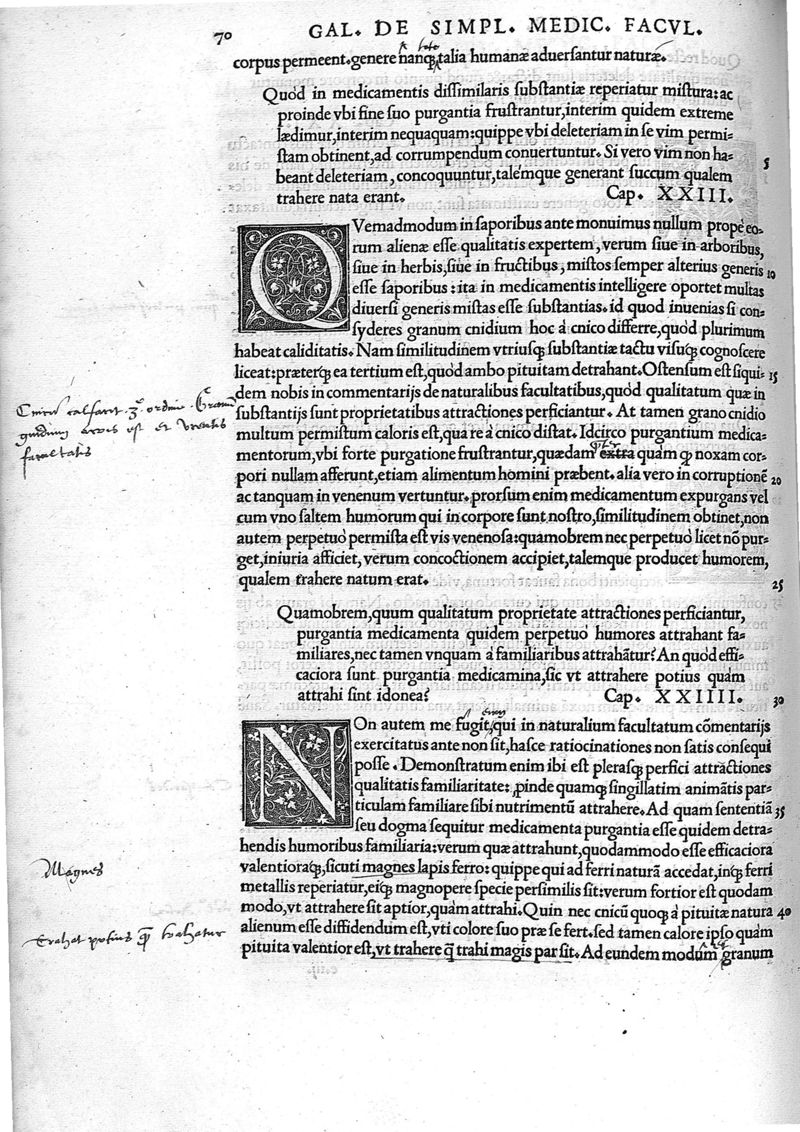 70
GAL. DE SIMPL. MEDIC. FACVL.
corpus permeent. genere nanq́; talia humanæ aduersantur naturæ.
Quòd in medicamentis dissimilaris substantiæ reperiatur mistura: ac
proinde vbi fine suo purgantia frustrantur, interim quidem extreme
lædimur, interim nequaquam: quippe vbi deleteriam in se vim permi-
stam obtinent, ad corrumpendum conuertuntur. Si vero vim non ha-
5
beant deleteriam, concoquuntur, talemque generant succum qualem
trahere nata erant. Cap. XXIII.
QVemadmodum in saporibus ante monuimus nullum propè eo-
rum alienæ esse qualitatis expertem, verum siue in arboribus,
siue in herbis, siue in fructibus, mistos semper alterius generis
10
esse saporibus: ita in medicamentis intelligere oportet multas
diuersi generis mistas esse substantias. id quod inuenias si con-
syderes granum cnidium hoc à cnico differre, quòd plurimum
habeat caliditatis. Nam similitudinem vtriusq; substantiæ tactu visuq; cognoscere
liceat: præterq; ea tertium est, quòd ambo pituitam detrahant. Ostensum est siqui-
15
dem nobis in commentarijs de naturalibus facultatibus, quòd qualitatum quæ in
substantijs sunt proprietatibus attractiones perficiantur. At tamen grano cnidio
multum permistum caloris est, qua re à cnico distat. Idcirco purgantium medica-
mentorum, vbi forte purgatione frustrantur, quædam extra quàm q; noxam cor-
pori nullam afferunt, etiam alimentum homini præbent. alia vero in corruptionẽ
20
ac tanquam in venenum vertuntur. prorsum enim medicamentum expurgans vel
cum vno saltem humorum qui in corpore sunt nostro, similitudinem obtinet, non
autem perpetuò permista est vis venenosa: quamobrem nec perpetuò licet nõ pur-
get, iniuria afficiet, verum concoctionem accipiet, talemque producet humorem,
qualem trahere natum erat.
25
Quamobrem, quum qualitatum proprietate attractiones perficiantur,
purgantia medicamenta quidem perpetuò humores attrahant fa-
miliares, nec tamen vnquam à familiaribus attrahãtur? An quòd effi-
caciora sunt purgantia medicamina, sic vt attrahere potius quàm
attrahi sint idonea? Cap. XXIIII.
30
NOn autem me fugit, qui in naturalium facultatum cõmentarijs
exercitatus ante non sit, hasce ratiocinationes non satis consequi
posse. Demonstratum enim ibi est plerasq; perfici attractiones
qualitatis familiaritate: ,pinde quamq; singillatim animãtis par-
ticulam familiare sibi nutrimentũ attrahere. Ad quam sententiã
35
seu dogma sequitur medicamenta purgantia esse quidem detra-
hendis humoribus familiaria: verum quæ attrahunt, quodammodo esse efficaciora
valentioraq́;, sicuti magnes lapis ferro: quippe qui ad ferri naturã accedat, inq́; ferri
metallis reperiatur, eiq́; magnopere specie persimilis sit: verum fortior est quodam
modo, vt attrahere sit aptior, quàm attrahi. Quin nec cnicũ quoq; à pituitæ natura
40
alienum esse diffidendum est, vti colore suo præ se fert. sed tamen calore ipso quàm
pituita valentior est, vt trahere q̃ trahi magis par sit. Ad eundem modum granum
Magnes
Trahat potius q̃ trahatur